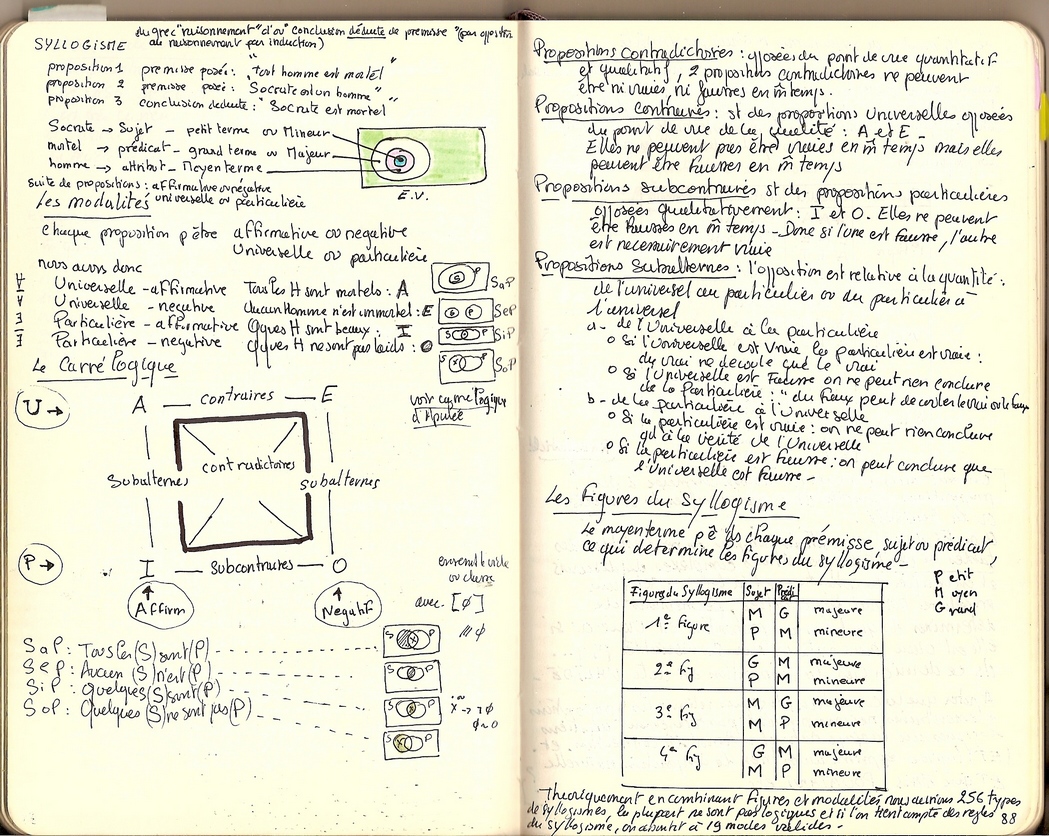 SYLLOGISME du grec "raisonnement" d'où conclusion déduite de premisse "(par opposition
au raisonnement par induction)
proposition 1 premisse posée : "tout homme est mortel"
proposition 2 premisse posée : "Socrate est un homme"
proposition 3 conclusion deduite : "Socrate est mortel"
Socrate → Sujet – petit terme ou Mineur
mortel → prédicat – grand terme ou Majeur
homme → attribut – Moyen terme
E.V.
Suite de propositions : affirmative ou négative
universelle ou particulière
Les modalités
chaque proposition p être affirmative ou negative
Universelle ou particulière
nous avons donc
Universelle – affirmative Tous les H sont mortels : A SaP
Universelle – negative Aucun Homme n'est immortel : E SeP
Particulière – affirmative Qques H sont beaux : I SiP
Particulière – negative Qques H ne sont pas laids : O SoP
Le Carré logique
voir carré logique
d'Apulée
U →
A — contraires — E
contradictoires
Subalternes subalternes
P →
I — subcontraires — O
Affirm Negatif
avec [∅]
/// ∅
SaP : Tous les (S) sont (P)
SeP : Aucun (S) n'est (P)
SiP : Quelques (S) sont (P)
SoP : Quelques (S) ne sont pas (P)
Propositions contradictoires : opposées du point de vue quantitatif
et qualitatif, 2 propositions contradictoires ne peuvent
être ni vraies, ni fausses en m̂ temps.
Propositions contraires : st des propositions Universelles opposées
du point de vue de la qualité : A et E –
Elles ne peuvent pas être vraies en m̂ temps mais elles
peuvent être fausses en m̂ temps
Propositions subcontraires st des propositions particulières
opposées qualitativement : I et O. Elles ne peuvent
être fausses en m̂ temps – Donc si l'une est fausse, l'autre
est necessairement vraie
Propositions Subalternes : l'opposition est relative à la quantité :
de l'universel au particulier ou du particulier à
l'universel
a – de l'Universelle à la particulière
o Si l'Universelle est vraie la particulière est vraie :
du vrai ne decoule que le vrai
o Si l'Universelle est Fausse on ne peut rien conclure
de la Particulière : "du faux peut decouler le vrai ou le faux
b – de la particulière à l'Universelle
o Si la particulière est vraie : on ne peut rien conclure
qt à la verité de l'Universelle
o Si la particulière est fausse : on peut conclure que
l'Universelle est fausse –
Les Figures du Syllogisme
Le moyen terme p ê ds chaque prémisse, sujet ou prédicat,
ce qui determine les figures du syllogisme –
Petit
Moyen
Grand
Figures du Syllogisme Sujet Prédicat
1e Figure M G majeure
P M mineure
2e Fig G M majeure
P M mineure
3e Fig M G majeure
M P mineure
4e Fig G M majeure
M P mineure
Théoriquement en combinant figures et modalités nous aurions 256 types
de Syllogismes, la plupart ne sont pas logiques et si l'on tient compte des regles
du syllogisme, on aboutit à 19 modes valides – 88